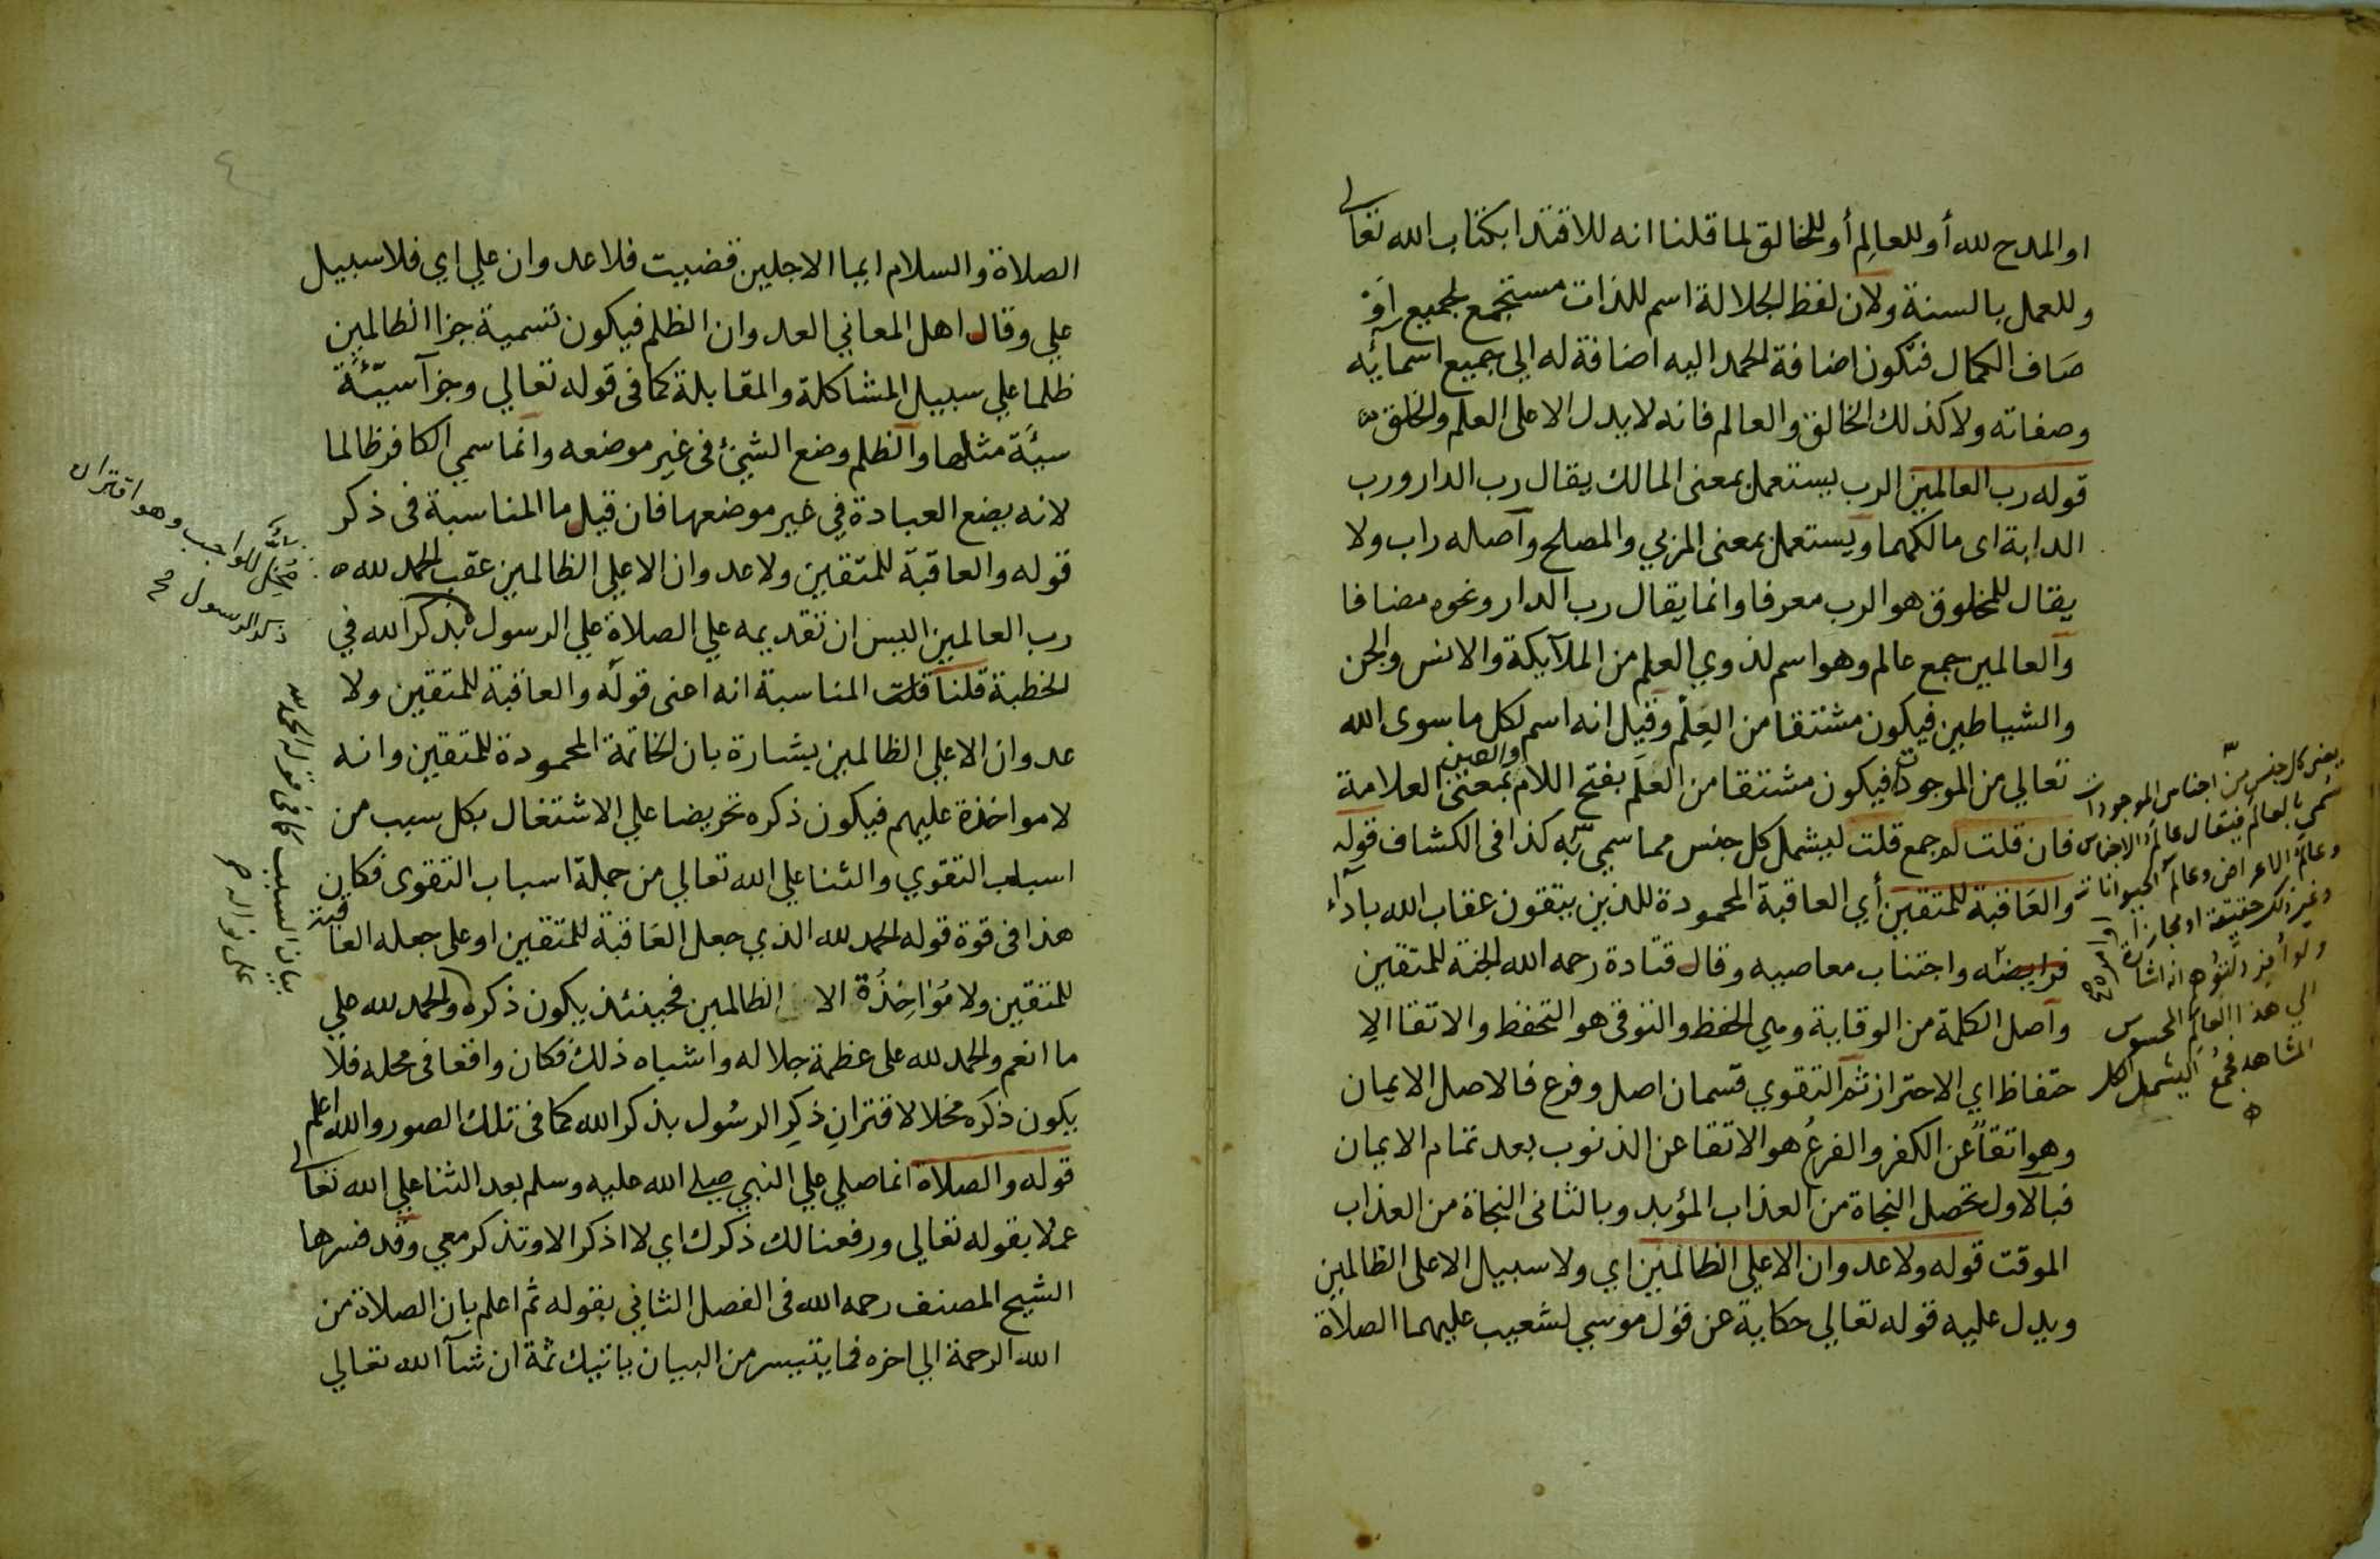 او المدح لله أو للعالِم أو للخالق لما قلنا انه للاقتدا بكتاب الله تعالى
وللعمل بالسنة ولان لفظ الجلالة اسم للذات مستجمع لجميع او
صَاف الكمال فتكون اضافة الحمد اليه اضافة له الي جميع اسمائه
وصفاته ولا كذلك الخالق والعالم فانه لا يدل الا على العلم والخلق
قوله رب العالمين الرب يستعمل بمعنى المالك يقال رب الدار ورب
الدابة اى مالكهما ويستعمل بمعنى المربي والمصلح وآصله راب ولا
يقال للمخلوق هو الرب معرفا وانما يقال رب الدار ونحوه مضافا
وآلعالمين جمع عالم وهو اسم لذوي العلم من الملآيكة والانس والجن
والشياطين فيكون مشتقا من العِلْم وقيل انه اسم لكل ما سوى الله
تعالي من الموجودات فيكون مشتقا من العَلَم بفتح اللام والعين بمعنى العلامة
فان قلت لم جمع قلت ليشمل كل جنس مما سمي به كذا فى الكشاف قوله
والعَاقبة للمتقين أي العاقبة المحمودة للذين يتقون عقاب الله باداء
فرايضه واجتناب معاصيه وقال قتادة رحمه الله الجنة للمتقين
وآصل الكلمة من الوقاية وهي الحفظ والتوقى هو التحفظ والاتقا الاِ
حتفاظ اي الاحتراز ثم آلتقوي قسمان اصل وفرع فالاصل الايمان
وهو اتقاً عن الكفر والفرعُ هو الاتقا عن الذنوب بعد تمام الايمان
فبآلاول تحصل النجاة من العذاب المؤبد وبالثانى النجاة من العذاب
الموقت قوله ولا عدوان الا علي الظالمين اي ولا سبيل الا على الظالمين
ويدل عليه قوله تعالي حكاية عن قول موسي لشعيب عليهما الصلاة
يعنى كل جنس من اجناس الموجودات
سُمي بالعالم فيقال عالَم الاجناس
وعالَم الاعراض وعالم الحيوانات
وغير ذلك حقيقة او مجازا
ولو أُفرد لتُوُهم انه اشارة
الي هذا العالم المحسوس
المشاهد فجُمع ليشمل الكل
الصلاة والسلام ايما الاجلين قضيت فلا عدوان علي اي فلا سبيل
علي وقال اهل المعاني العدوان الظلم فيكون تسمية جزا الظالمين
ظلما علي سبيل المشاكلة والمقابلة كما فى قوله تعالي وجزآ سيّئَة
سيئَة مثلها وآلظلم وضع الشيئ فى غير موضعه وانما سمي الكافر ظالما
لانه يضع العبادة في غير موضعها فان قيل ما المناسبة فى ذكر
قوله والعاقبة للمتقين ولا عدوان الا علي الظالمين عقب الحمد لله
رب العالمين اليس ان تقديمه علي الصلاة علي الرسول بذكر الله في
الخطبة قلنا قلت المناسبة انه اعنى قوله والعاقبة للمتقين ولا
عدوان الا علي الظالمين بشارة بان الخاتمة المحمودة للمتقين وانه
لا مواخذة عليهم فيكون ذكره تحريضا علي الاشتغال بكل سبب من
اسباب التقوي والثنا علي الله تعالي من جملة اسباب التقوى فكان
هذا فى قوة قوله الحمد لله الذي جعل العَاقبة للمتقين او على جعله العاقبة
للمتقين ولا مُوٰاخِذُة الا الظالمين فحينئذ يكون ذكره والحمد لله علي
ما انعم والحمد لله على عظمة جلاله واشباه ذلك فكان واقعا فى محله فلا
يكون ذكره مخلا لاقترانِ ذِكِر الرسُول بذكر الله كما فى تلك الصور والله اعلم
قوله والصلاة انما صلي علي النبي صلى الله عليه وسلم بعد الثنا علي الله تعالى
عملا بقوله تعالي ورفعنا لك ذكرك اي لا اذكر الا وتذكر معي وقد فسرها
الشيخ المصنف رحمه الله فى الفصل الثاني بقوله ثم اعلم بان الصلاة من
الله الرحمة الي اخره فما يتيسر من البيان ياتيك ثمة ان شآ الله تعالي
مُخِل للواجب وهو اقتران
ذكر الرسول صح